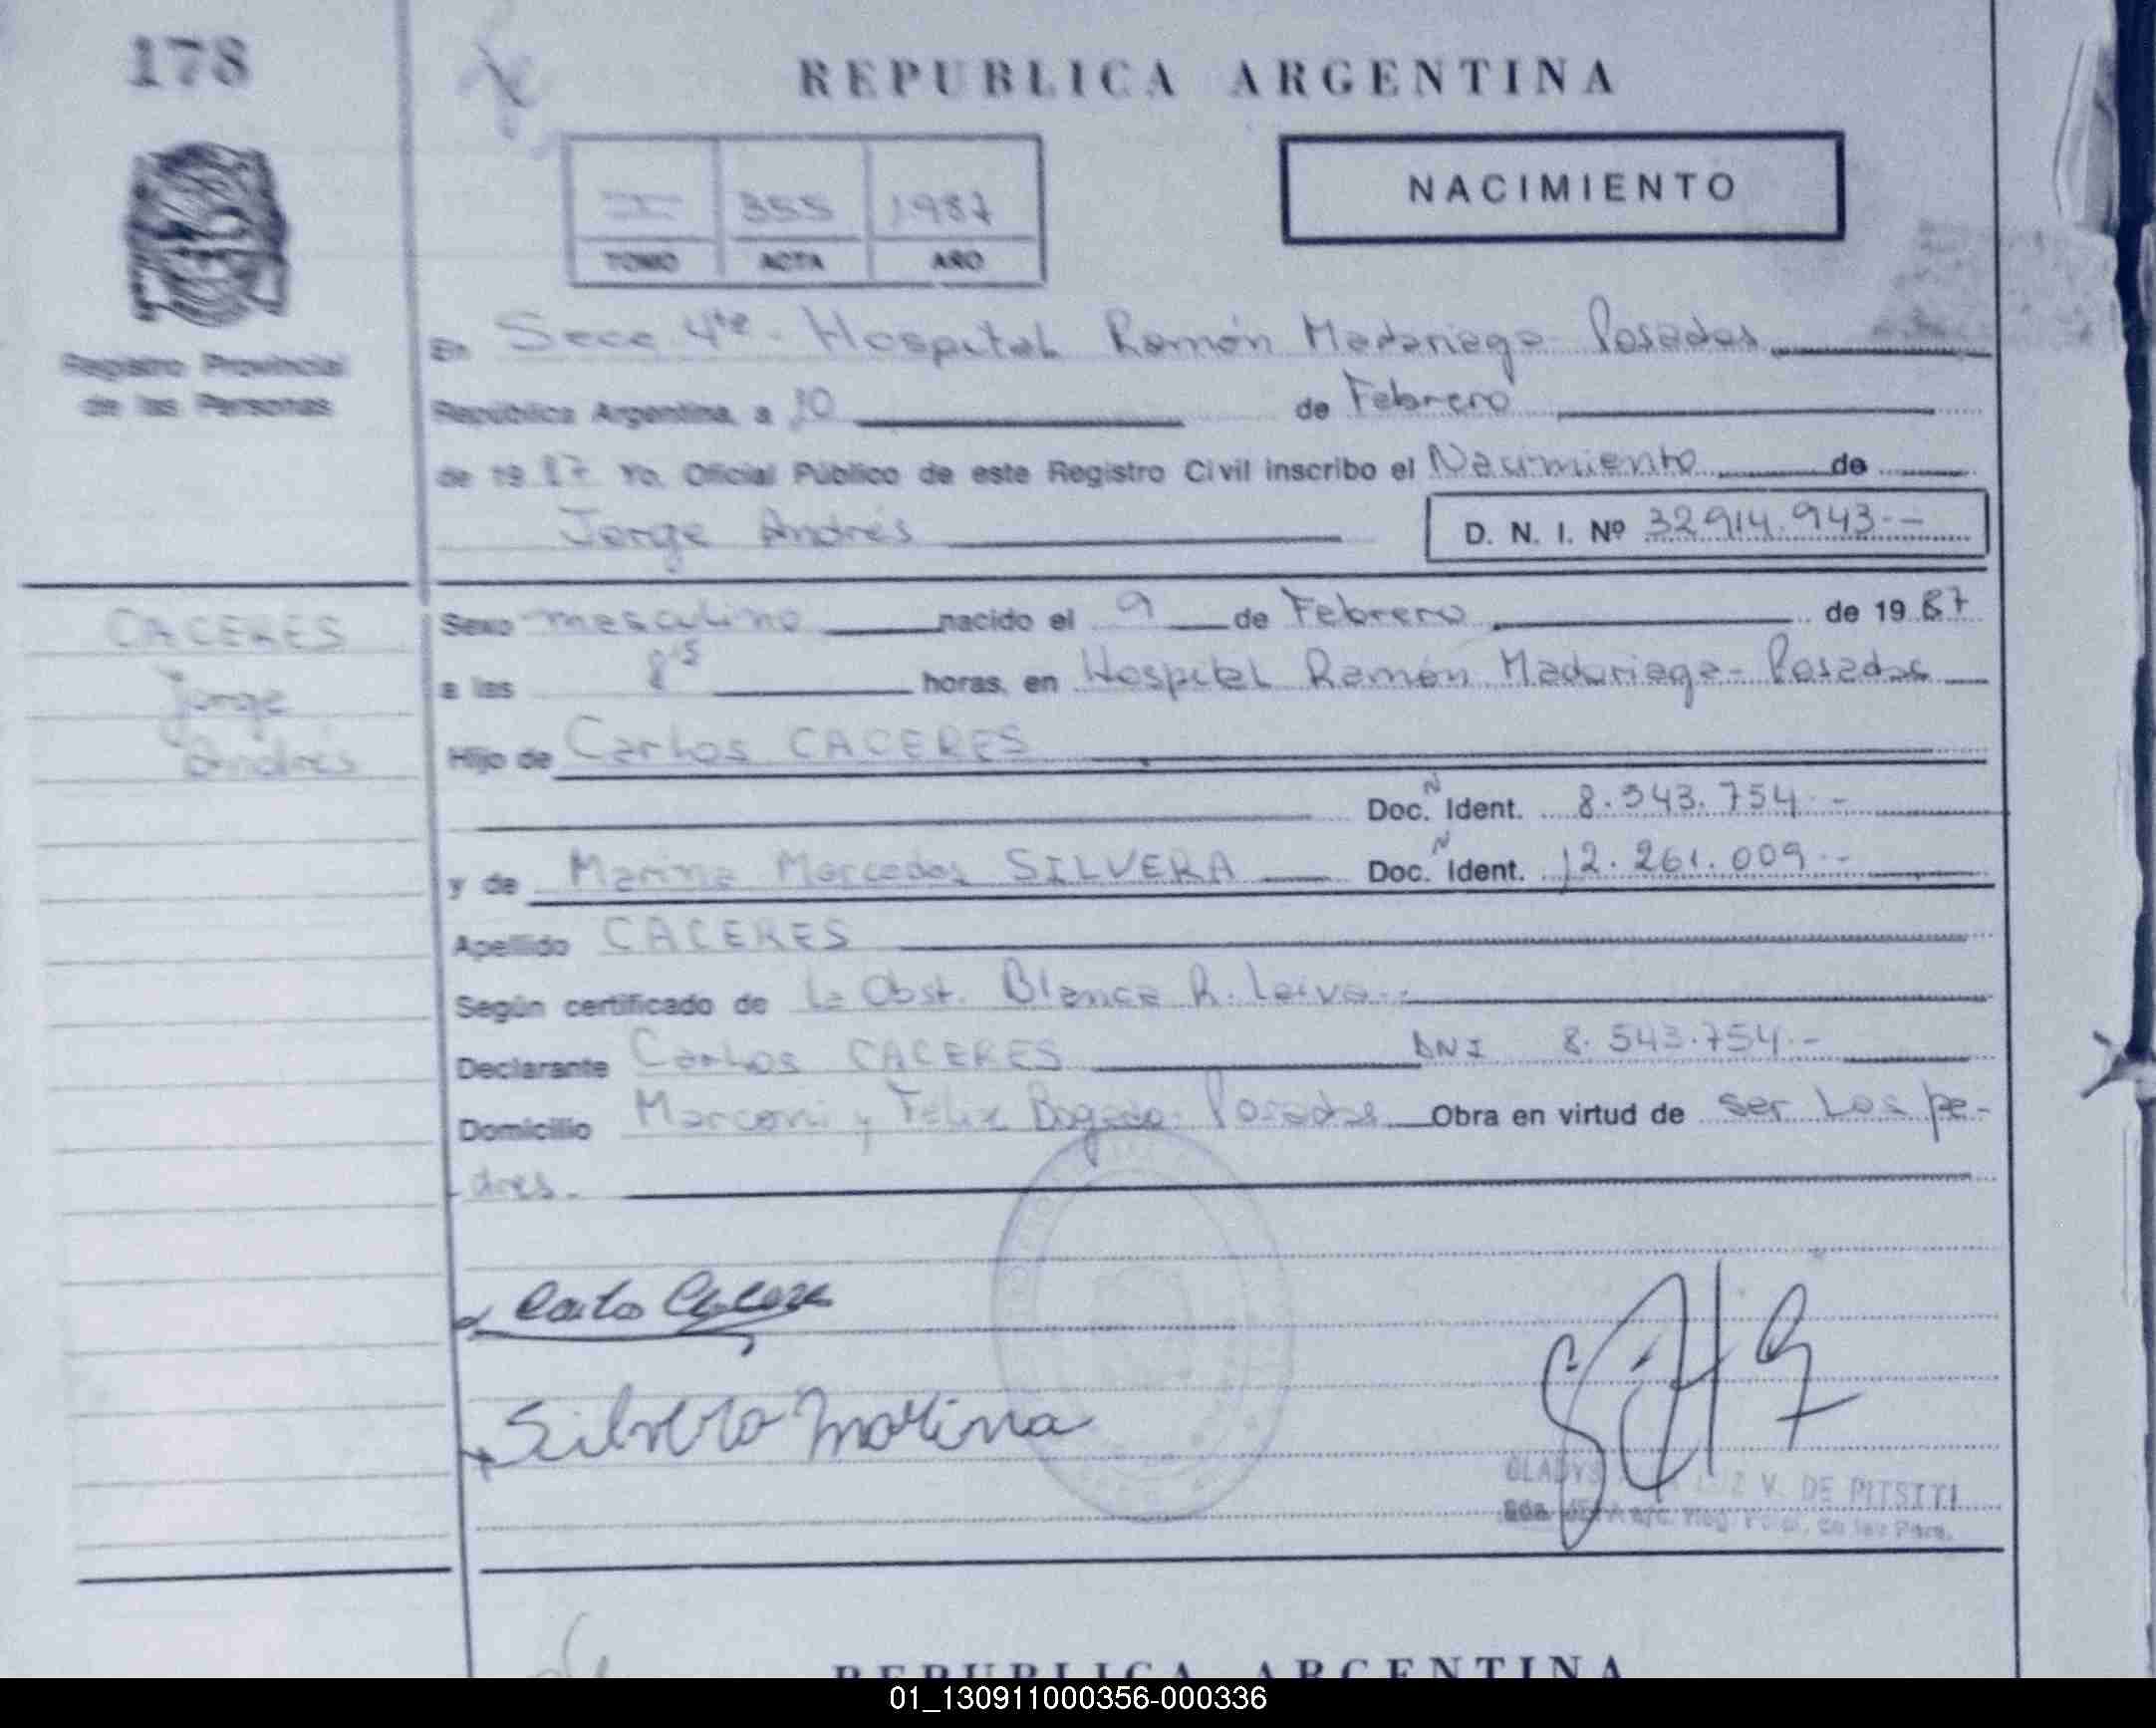 178
REPUBLICA ARGENTINA
NACIMIENTO
I 355 1987
TOMO ACTA AÑO
Registro Provincial
de las Personas
En Secc 4ta - Hospital Ramón Madariaga - Posadas
República Argentina, a 10 de Febrero
de 1987 Yo, Oficial Público de este Registro Civil inscribo el Nacimiento de
Jorge Andrés D. N. I. Nº 32.914.943.--
CACERES
Jorge
Andrés
Sexo masculino nacido el 9 de Febrero de 1987
a las 8 horas, en Hospital Ramón Madariaga - Posadas
Hijo de Carlos CACERES
Doc. N Ident. 8.543.754.-
y de Marina Mercedes SILVERA Doc. N Ident. 12.261.009.--
Apellido CACERES
Según certificado de la Obst. Blanca R. Leiva.-
Declarante Carlos CACERES DNI 8.543.754.-
Domicilio Marconi y Felix Bogado - Posadas Obra en virtud de ser los pa-
dres.-
Carlos Caceres
Silvera Marina
GLADYS V. DE PITSITI
REPUBLICA ARGENTINA
01_130911000356-000336